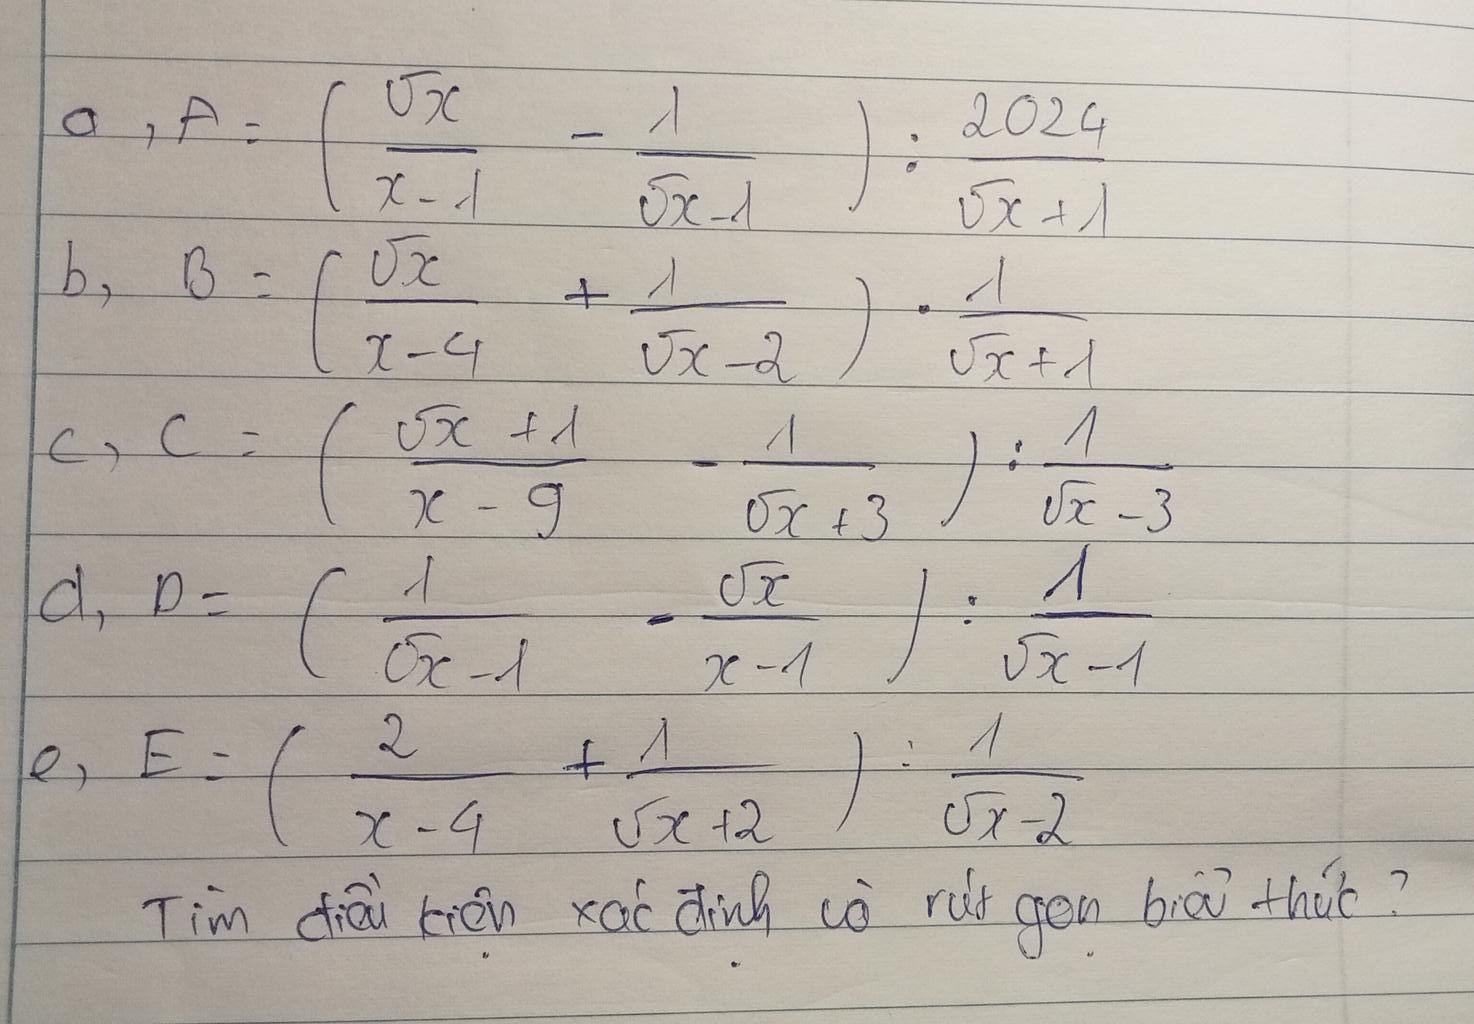 a, A = ( √x / (x - 1) - 1 / (√x - 1) ) : 2024 / (√x + 1)
b, B = ( √x / (x - 4) + 1 / (√x - 2) ) . 1 / (√x + 1)
c, C = ( (√x + 1) / (x - 9) - 1 / (√x + 3) ) : 1 / (√x - 3)
d, D = ( 1 / (√x - 1) - √x / (x - 1) ) : 1 / (√x - 1)
e, E = ( 2 / (x - 4) + 1 / (√x + 2) ) : 1 / (√x - 2)
Tìm điều kiện xác định và rút gọn biểu thức ?